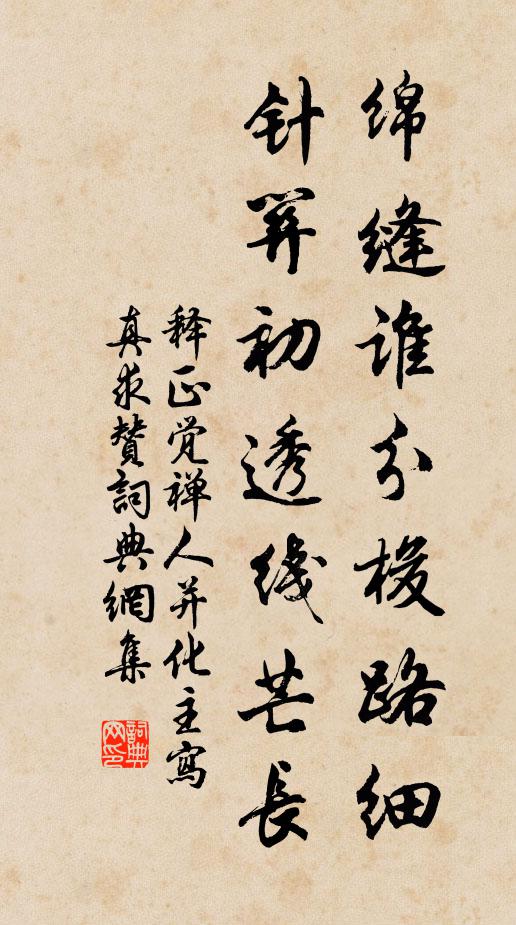 绵缝谁分梭路细
针初透线芒長
释正觉禅人并化主寫
真求赞詞典網集
詞典
网印